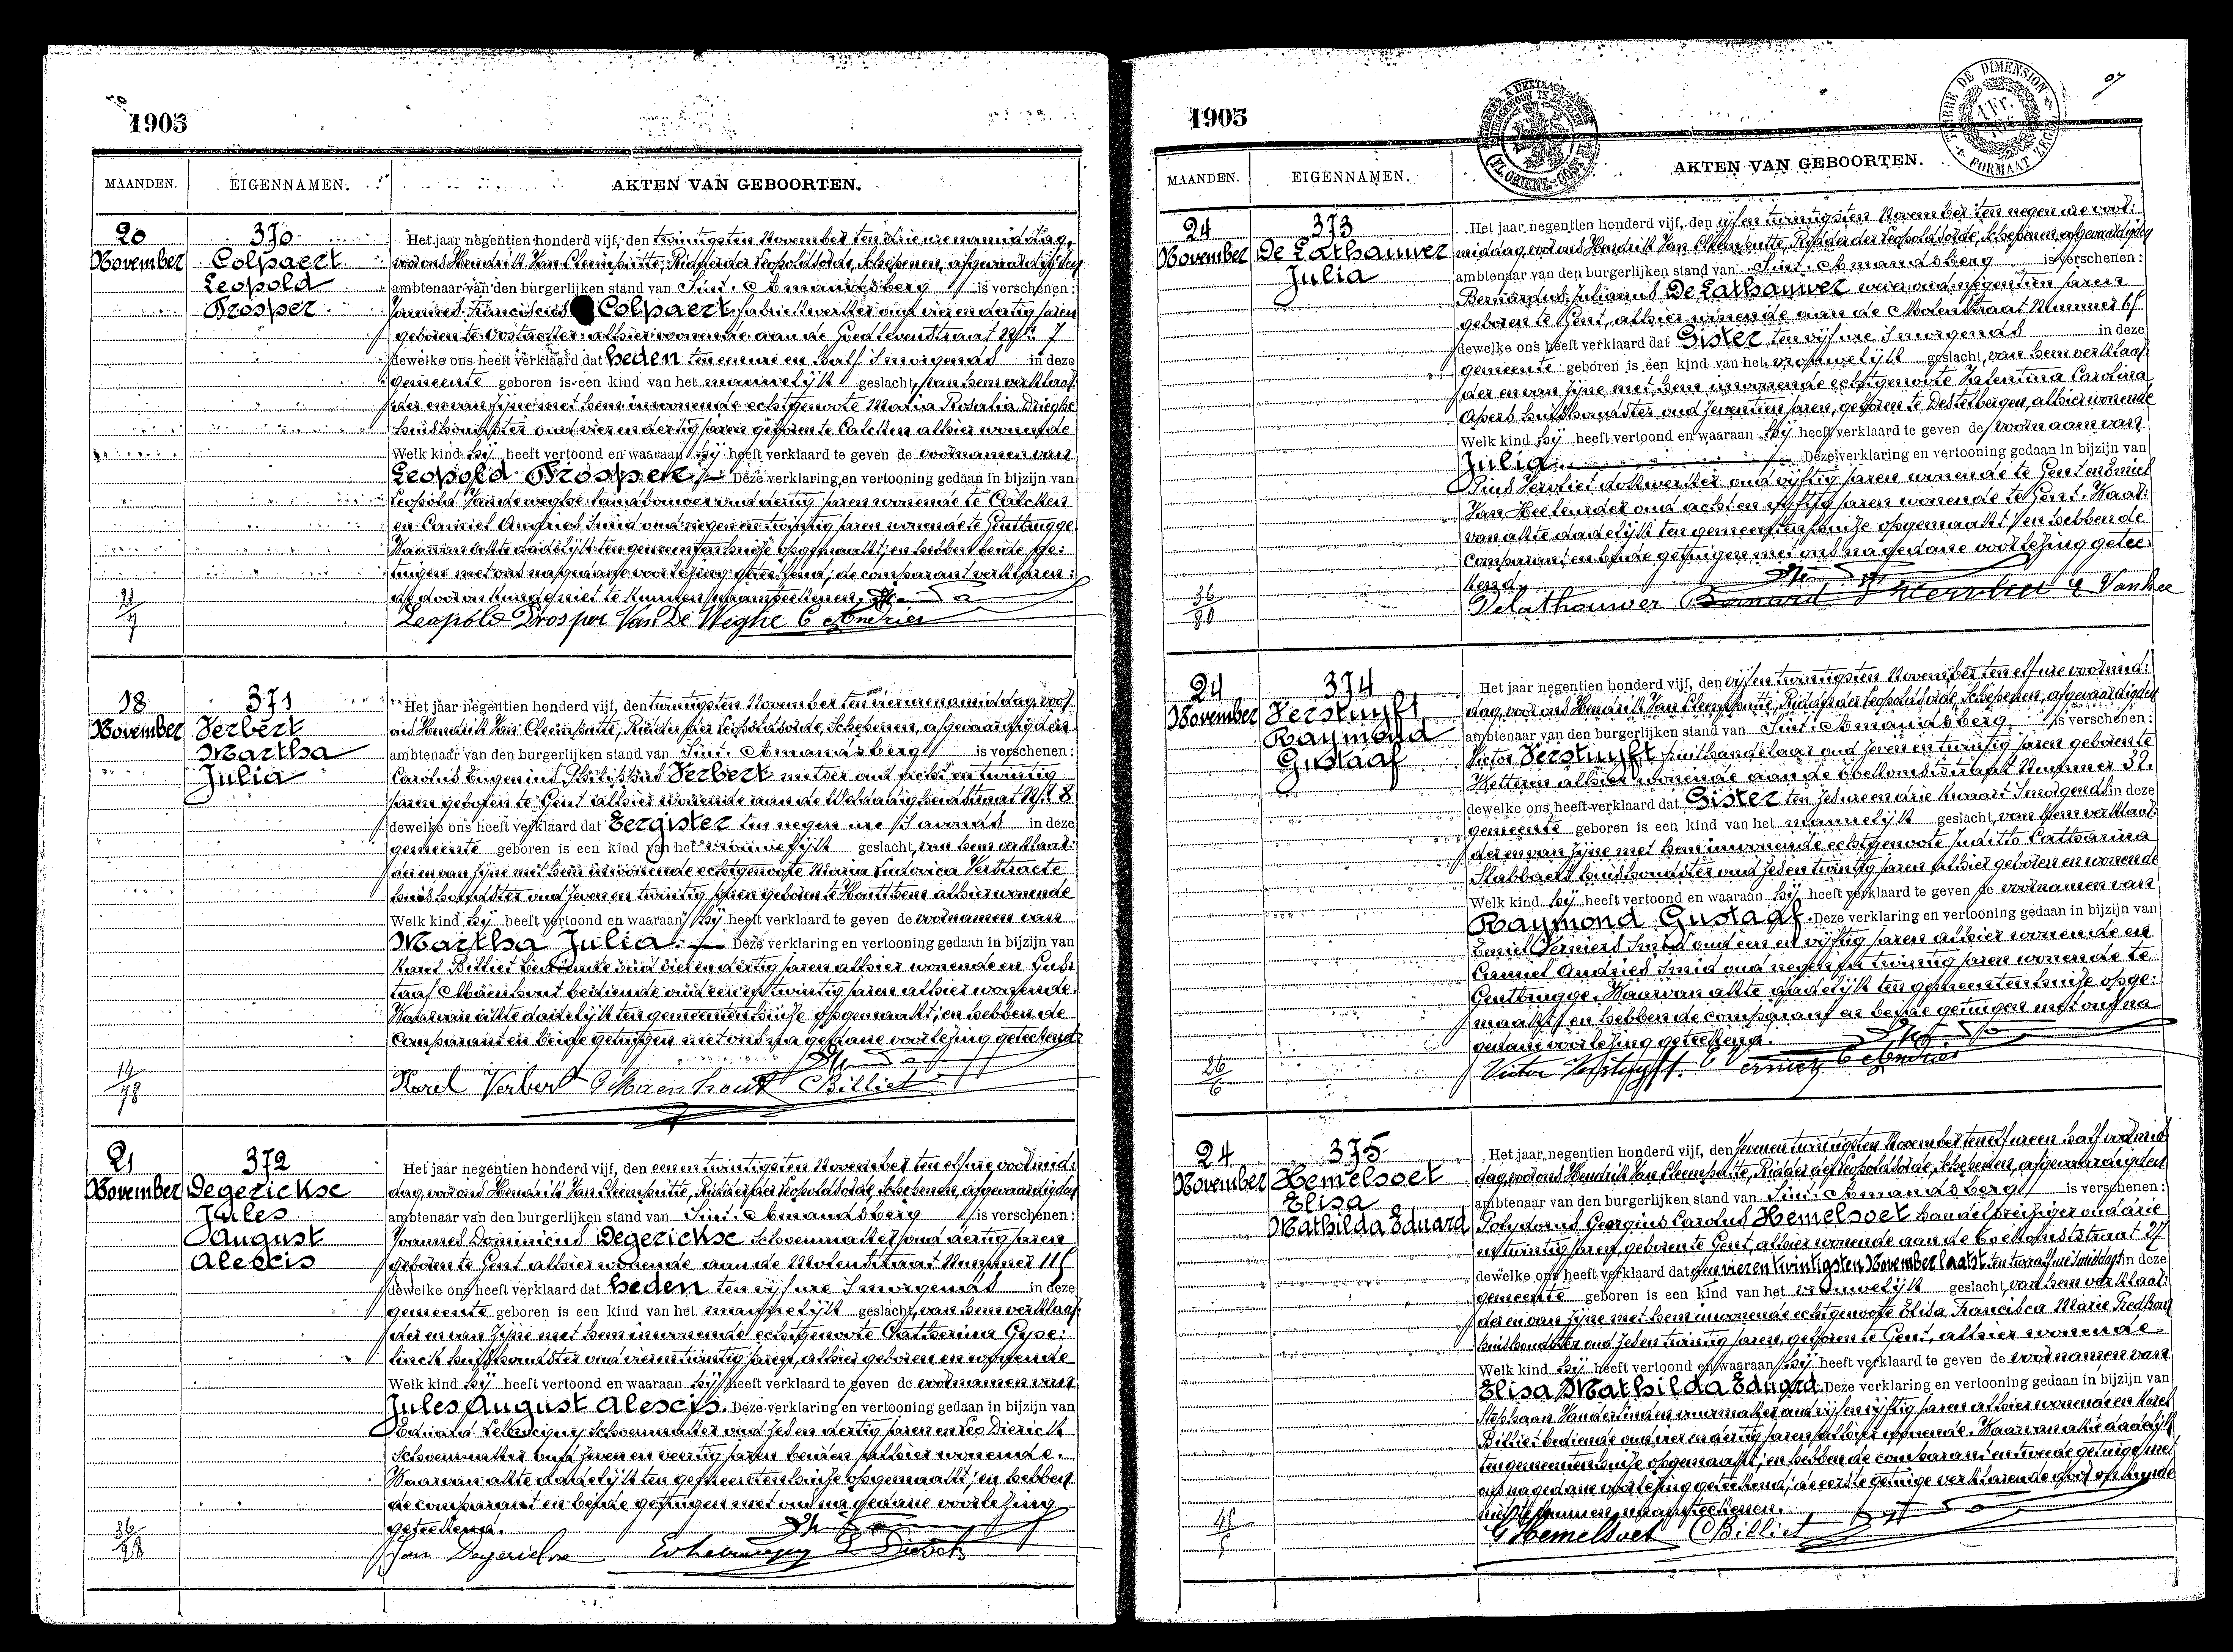 1905
MAANDEN. EIGENNAMEN. AKTEN VAN GEBOORTEN.
20 November
370
Colpaert
Leopold
Prosper
Het jaar negentien honderd vijf, den twintigsten November ten drie ure namiddag,
voor ons Hendrik Van Cleemputte, Ridder der Leopoldsorde, Schepenen, afgevaardigden
ambtenaar van den burgerlijken stand van Sint-Amandsberg is verschenen:
Joannes Franciscus Colpaert fabriekwerker oud vier en dertig jaren
geboren te Oostacker alhier wonende aan de Goedlevenstraat Nr. 7
dewelke ons heeft verklaard dat heden ten eenure en half 's morgends in deze
gemeente geboren is een kind van het mannelijk geslacht, van hem verklaar-
der en van zijne met hem inwonende echtgenoote Maria Rosalia Drieghe
huishoudster oud vier en dertig jaren geboren te Calcken alhier wonende
Welk kind hij heeft vertoond en waaraan hij heeft verklaard te geven de voornamen van
Leopold Prosper. Deze verklaring en vertooning gedaan in bijzijn van
Leopold Vandeweghe landbouwer oud dertig jaren wonende te Calcken
en Camiel Andries smid oud negen en twintig jaren wonende te Gentbrugge.
Waarvan akte dadelijk ten gemeentenhuize opgemaakt; en hebben beide ge:
tuigen met ons na gedane voorlezing geteekend; de comparant verklaren:
de door onkunde niet te kunnen naamteekenen.
Leopold Prosper Van De Weghe C Andries
18 November
371
Verbert
Martha
Julia
Het jaar negentien honderd vijf, den twintigsten November ten vier ure namiddag, voor
ons Hendrik Van Cleemputte, Ridder der Leopoldsorde, Schepenen, afgevaardigden
ambtenaar van den burgerlijken stand van Sint-Amandsberg is verschenen:
Carolus Eugenius Philippus Verbert metser oud acht en twintig
jaren geboren te Gent alhier wonende aan de Weldadigheidstraat Nr. 8
dewelke ons heeft verklaard dat Eergister ten negen ure 's avonds in deze
gemeente geboren is een kind van het vrouwelijk geslacht, van hem verklaar:
der en van zijne met hem inwonende echtgenoote Maria Ludovica Verstraete
huishoudster oud zeven en twintig jaren geboren te Houtthem alhier wonende
Welk kind hij heeft vertoond en waaraan hij heeft verklaard te geven de voornamen van
Martha Julia. Deze verklaring en vertooning gedaan in bijzijn van
Karel Billiet bediende oud vier en dertig jaren alhier wonende en Gus:
taaf Maenhout bediende oud een en twintig jaren alhier wonende.
Waarvan akte dadelijk ten gemeentenhuize opgemaakt; en hebben de
comparant en beide getuigen met ons na gedane voorlezing geteekend.
19/78
Karel Verbert G Maenhout C Billiet
21 November
372
Degerickse
Jules
August
Alescis
Het jaar negentien honderd vijf, den eenen twintigsten November ten elf ure voormid:
dag, voor ons Hendrik Van Cleemputte, Ridder der Leopoldsorde Schepenen, afgevaardigden
ambtenaar van den burgerlijken stand van Sint-Amandsberg is verschenen:
Joannes Dominicus Degerickse Schoenmaker oud dertig jaren
geboren te Gent alhier wonende aan de Molenstraat Nummer 115
dewelke ons heeft verklaard dat heden ten vijf ure 's morgends in deze
gemeente geboren is een kind van het mannelijk geslacht, van hem verklaar:
der en van zijne met hem inwonende echtgenoote Catherina Gyse:
linck huishoudster oud vier en twintig jaren, alhier geboren en wonende
Welk kind hij heeft vertoond en waaraan hij heeft verklaard te geven de voornamen van
Jules August Alescis. Deze verklaring en vertooning gedaan in bijzijn van
Eduard schoenmaker oud zes en dertig jaren en Leo Dierick
schoenmaker oud zeven en veertig jaren beiden alhier wonende.
Waarvan akte dadelijk ten gemeentenhuize opgemaakt; en hebben
de comparant en beide getuigen met ons na gedane voorlezing
geteekend.
36/28
Jan Degerickse L Dierick
1905
TIMBRE DE DIMENSION
1 Fr.
FORMAAT ZEGEL
MAANDEN. EIGENNAMEN. AKTEN VAN GEBOORTEN.
24 November
373
De Lathauwer
Julia
Het jaar negentien honderd vijf, den vijf en twintigsten November ten negen ure voor:
middag, voor ons Hendrik Van Cleemputte, Ridder der Leopoldsorde, Schepenen, afgevaardigden
ambtenaar van den burgerlijken stand van Sint-Amandsberg is verschenen:
Bernardus Julianus De Lathauwer wever oud negentien jaren
geboren te Gent, alhier wonende aan de Molenstraat Nummer 65
dewelke ons heeft verklaard dat Gister ten vijf ure 's morgends in deze
gemeente geboren is een kind van het vrouwelijk geslacht, van hem verklaar:
der en van zijne met hem inwonende echtgenoote Valentina Carolina
Apers huishoudster oud zeventien jaren, geboren te Destelbergen, alhier wonende
Welk kind hij heeft vertoond en waaraan hij heeft verklaard te geven de voornaam van
Julia. Deze verklaring en vertooning gedaan in bijzijn van
Pius Vervliet dokwerker oud vijftig jaren wonende te Gent en Emiel
Van Hee oud acht en vijftig jaren wonende te Gent. Waar:
van akte dadelijk ten gemeentenhuize opgemaakt; en hebben de
comparant en beide getuigen met ons na gedane voorlezing getee:
kend.
36/80
Delathouwer Bernard P Vervliet E Vanhee
24 November
374
Verstuyft
Raymond
Gustaaf
Het jaar negentien honderd vijf, den vijf en twintigsten November ten elf ure voormid:
dag, voor ons Hendrik Van Cleemputte, Ridder der Leopoldsorde, Schepenen, afgevaardigden
ambtenaar van den burgerlijken stand van Sint-Amandsberg is verschenen:
Victor Verstuyft fruithandelaar oud zeven en twintig jaren geboren te
Wetteren alhier wonende aan de Toekomststraat Nummer 32.
dewelke ons heeft verklaard dat Gister ten zes ure en drie kwaart 's morgends in deze
gemeente geboren is een kind van het mannelijk geslacht, van hem verklaar:
der en van zijne met hem inwonende echtgenoote Judith Catharina
Slabbaert huishoudster oud zes en twintig jaren alhier geboren en wonende
Welk kind hij heeft vertoond en waaraan hij heeft verklaard te geven de voornamen van
Raymond Gustaaf. Deze verklaring en vertooning gedaan in bijzijn van
Emiel smid oud een en vijftig jaren alhier wonende en
Camiel Andries smid oud negen en twintig jaren wonende te
Gentbrugge. Waarvan akte dadelijk ten gemeentenhuize opge:
maakt; en hebben de comparant en beide getuigen met ons na
gedane voorlezing geteekend.
26/6
Victor Verstuyft. C Andries
24 November
375
Hemelsoet
Elisa
Mathilda Eduard
Het jaar negentien honderd vijf, den zeven en twintigsten November ten elf ure en half voormid
dag, voor ons Hendrik Van Cleemputte, Ridder der Leopoldsorde, Schepenen, afgevaardigden
ambtenaar van den burgerlijken stand van Sint-Amandsberg is verschenen:
Polydorus Georgius Carolus Hemelsoet handelsreiziger oud drie
en twintig jaren, geboren te Gent, alhier wonende aan de Toekomststraat 27.
dewelke ons heeft verklaard dat den vier en twintigsten November laatst ten twaalf ure 's middags in deze
gemeente geboren is een kind van het vrouwelijk geslacht, van hem verklaar:
der en van zijne met hem inwonende echtgenoote Elisa Francisca Marie
huishoudster oud zes en twintig jaren, geboren te Gent, alhier wonende
Welk kind hij heeft vertoond en waaraan hij heeft verklaard te geven de voornamen van
Elisa Mathilda Eduard. Deze verklaring en vertooning gedaan in bijzijn van
Stephaan Vanderlinden oud vijf en vijftig jaren alhier wonende en Karel
Billiet bediende oud vier en dertig jaren alhier wonende. Waarvan akte dadelijk
ten gemeentenhuize opgemaakt; en hebben de comparant en tweede getuige met
ons na gedane voorlezing geteekend; de eerste getuige verklarende door onkunde
niet te kunnen naamteekenen.
G Hemelsoet C Billiet